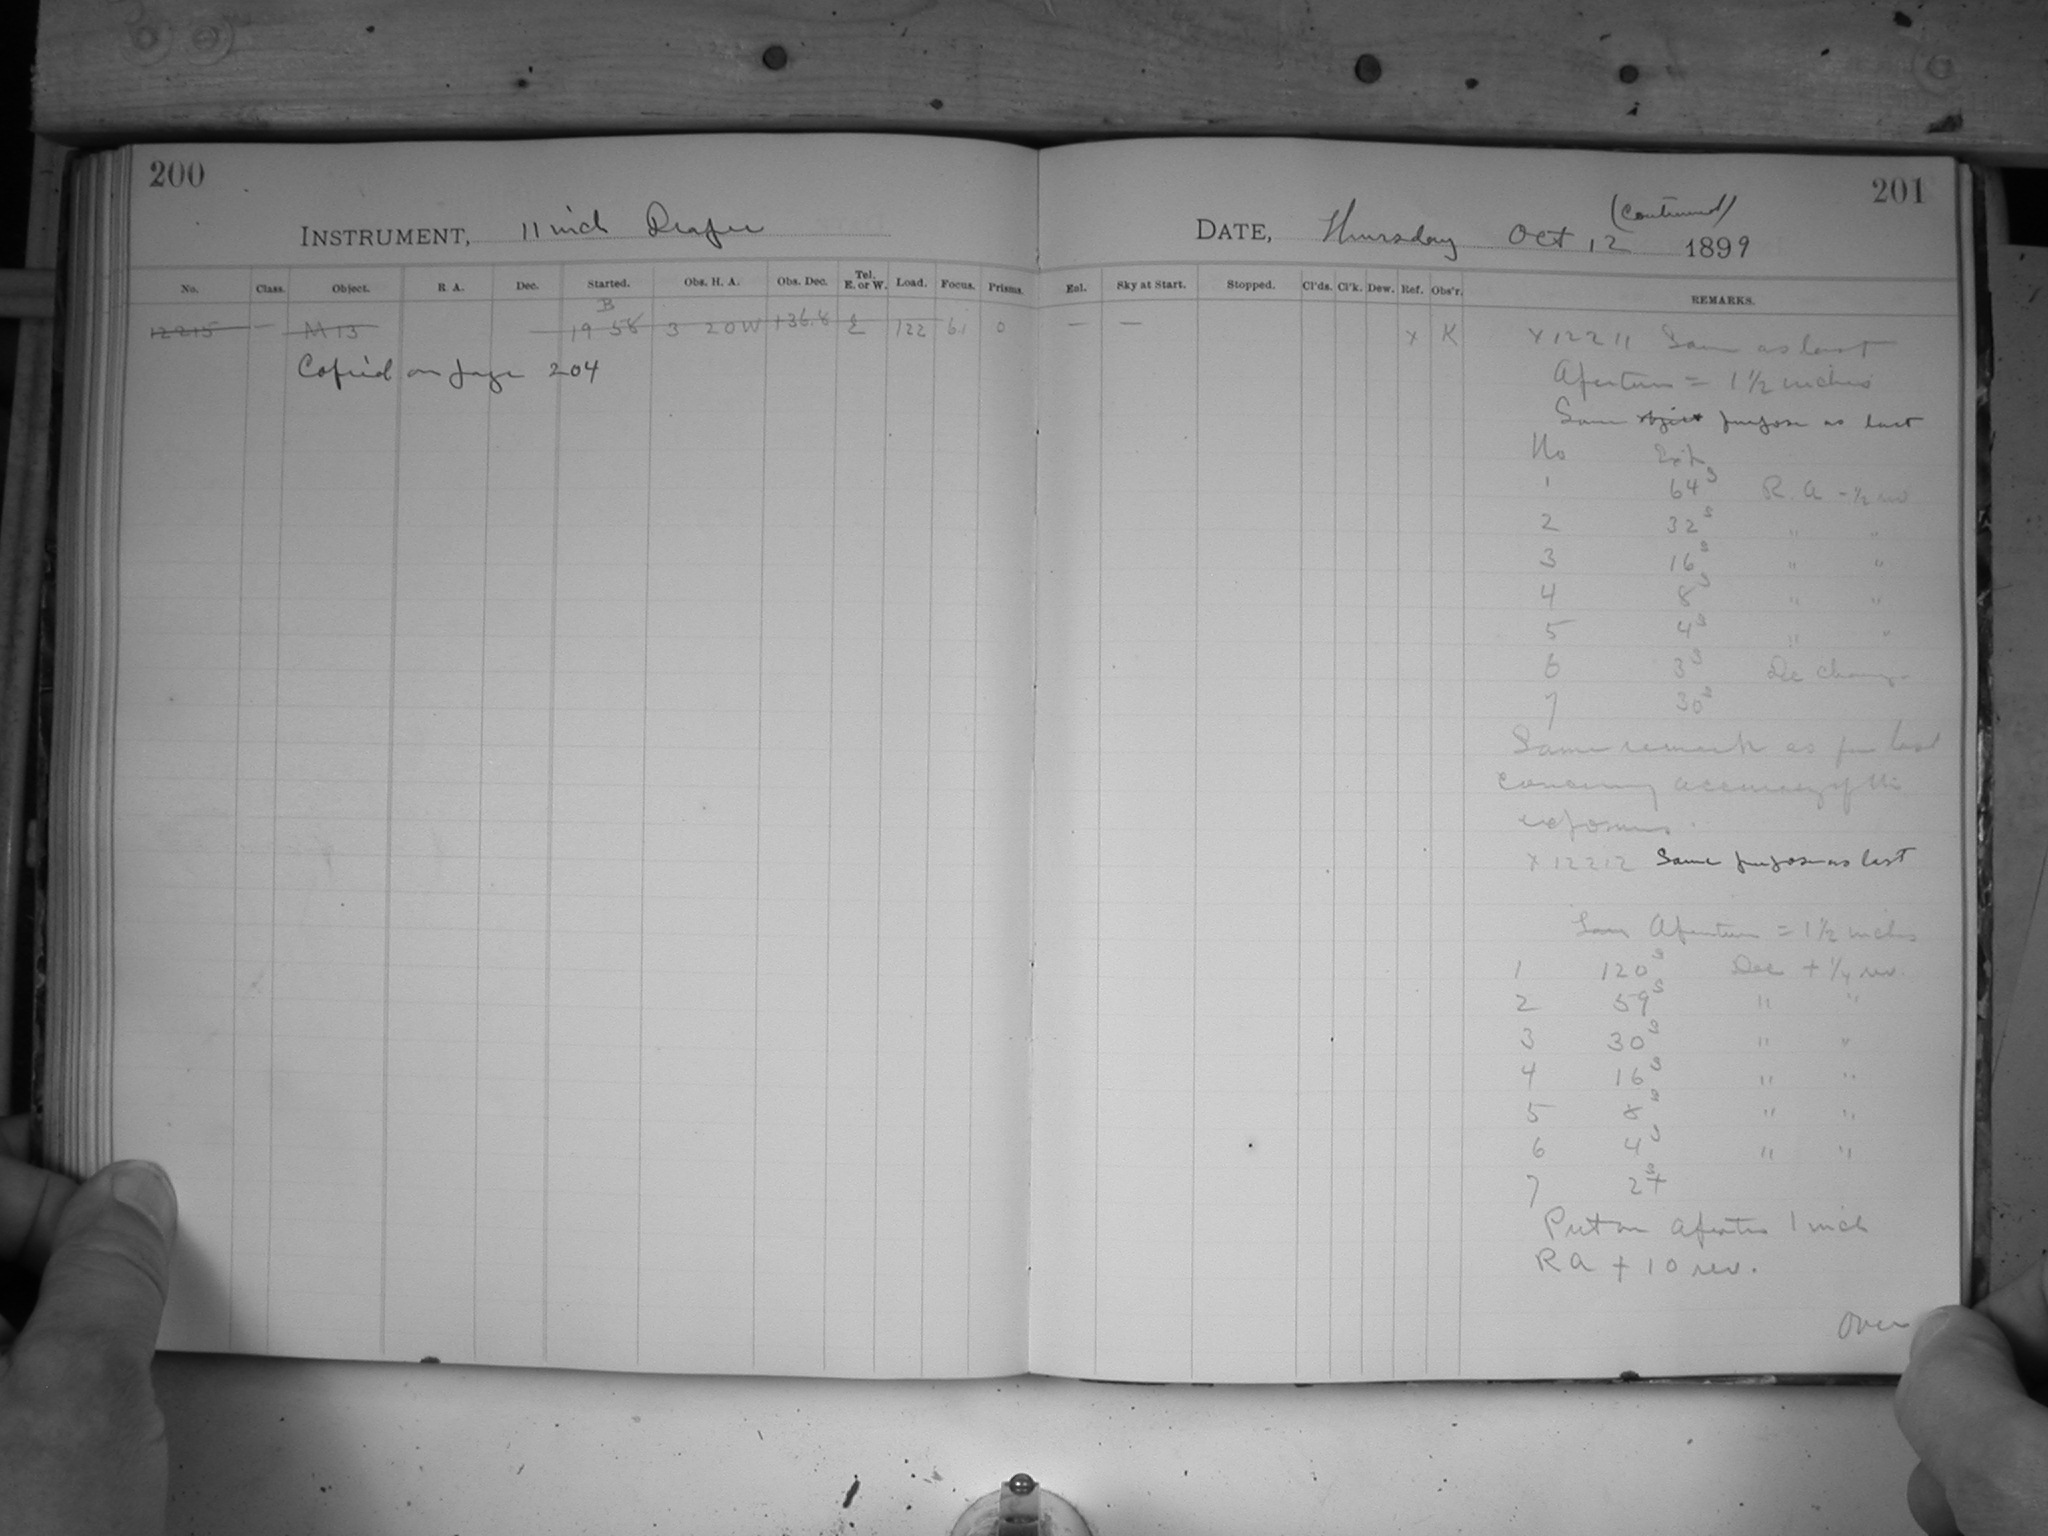 200
INSTRUMENT, 11 inch Draper
No. Class. Object. R. A. Dec. Started. Obs. H. A. Obs. Dec. Tel. E. or W. Load. Focus. Prisms.
B
12215 — M 13 — 19 58 3 20 W +36.8 E 122 6.1 0
Copied on page 204
201
(Continued)
DATE, Thursday Oct 12 1899
Enl. Sky at Start. Stopped. Cl'ds. Cl'k. Dew. Ref. Obs'r. REMARKS.
— — x K X 12211 Same as last
Aperture = 1 1/2 inches
Same object purpose as last
No Exp
1 64s R.A - 1/2 rev
2 32s " "
3 16s " "
4 8s " "
5 4s " "
6 3s Dec change
7 30s
Same remark as for last
concerning accuracy of the
exposures.
X 12212 Same purpose as last
Same Aperture = 1 1/2 inches
1 120s Dec + 1/4 rev.
2 59s " "
3 30s " "
4 16s " "
5 8s " "
6 4s " "
7 2s+
Put on aperture 1 inch
RA + 10 rev.
Over